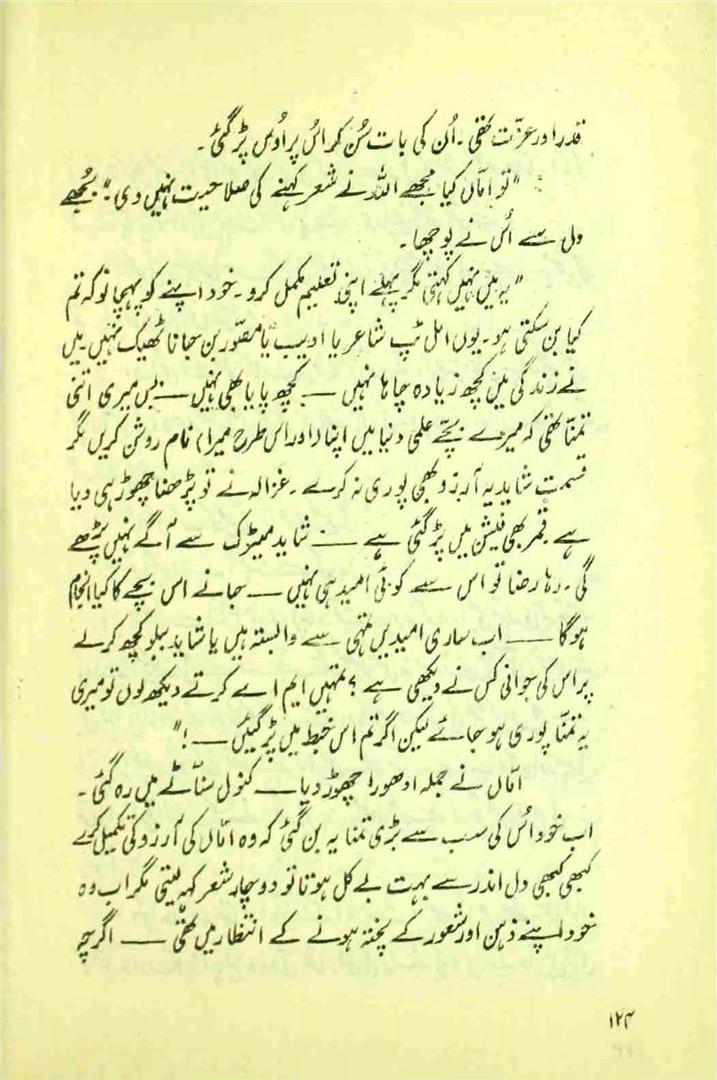 قدر اور عزّت تھی۔ اُن کی بات سُن کر اُس پر اوس پڑ گئی۔
"تو امّاں کیا مجھے اللہ نے شعر کہنے کی صلاحیت نہیں دی۔" بُجھے
دل سے اُس نے پوچھا۔
"یہ میں نہیں کہتی مگر پہلے اپنی تعلیم مکمل کرو۔ خود اپنے کو پہچانو کہ تم
کیا بن سکتی ہو۔ یوں اٹل ٹپ شاعر یا ادیب یا مصّور بن جانا ٹھیک نہیں۔ میں
نے زندگی میں کچھ زیادہ چاہا نہیں — کچھ پایا بھی نہیں — بس میری اتنی
تمنّا تھی کہ میرے بچّے علمی دنیا میں اپنا (اور اس طرح میرا) نام روشن کریں مگر
قسمت شاید یہ آرزو بھی پوری نہ کرے۔ غزالہ نے تو پڑھنا چھوڑ ہی دیا
ہے قمر بھی فیشن میں پڑ گئی ہے — شاید میٹرک سے آگے نہیں پڑھے
گی۔ رہا رضا تو اس سے کوئی امید ہی نہیں — جانے اس بچے کا کیا انجام
ہو گا — اب ساری امیدیں تمہی سے وابستہ ہیں یا شاید ببلو کچھ کرلے
پر اس کی جوانی کس نے دیکھی ہے ؟ تمہیں ایم اے کرتے دیکھ لوں تو میری
یہ تمنّا پوری ہو جائے لیکن اگر تم اس خبط میں پڑ گئیں — !"
امّاں نے جملہ ادھورا چھوڑ دیا — کنول سنّاٹے میں رہ گئی۔
اب خود اُس کی سب سے بڑی تمنا یہ بن گئی کہ وہ امّاں کی آرزو کی تکمیل کرے
کبھی کبھی دل اندر سے بہت بے کل ہوتا تو دو چار شعر کہہ لیتی مگر اب وہ
خود اپنے ذہن اور شعور کے پختہ ہونے کے انتظار میں تھی — اگرچہ
۱۲۴